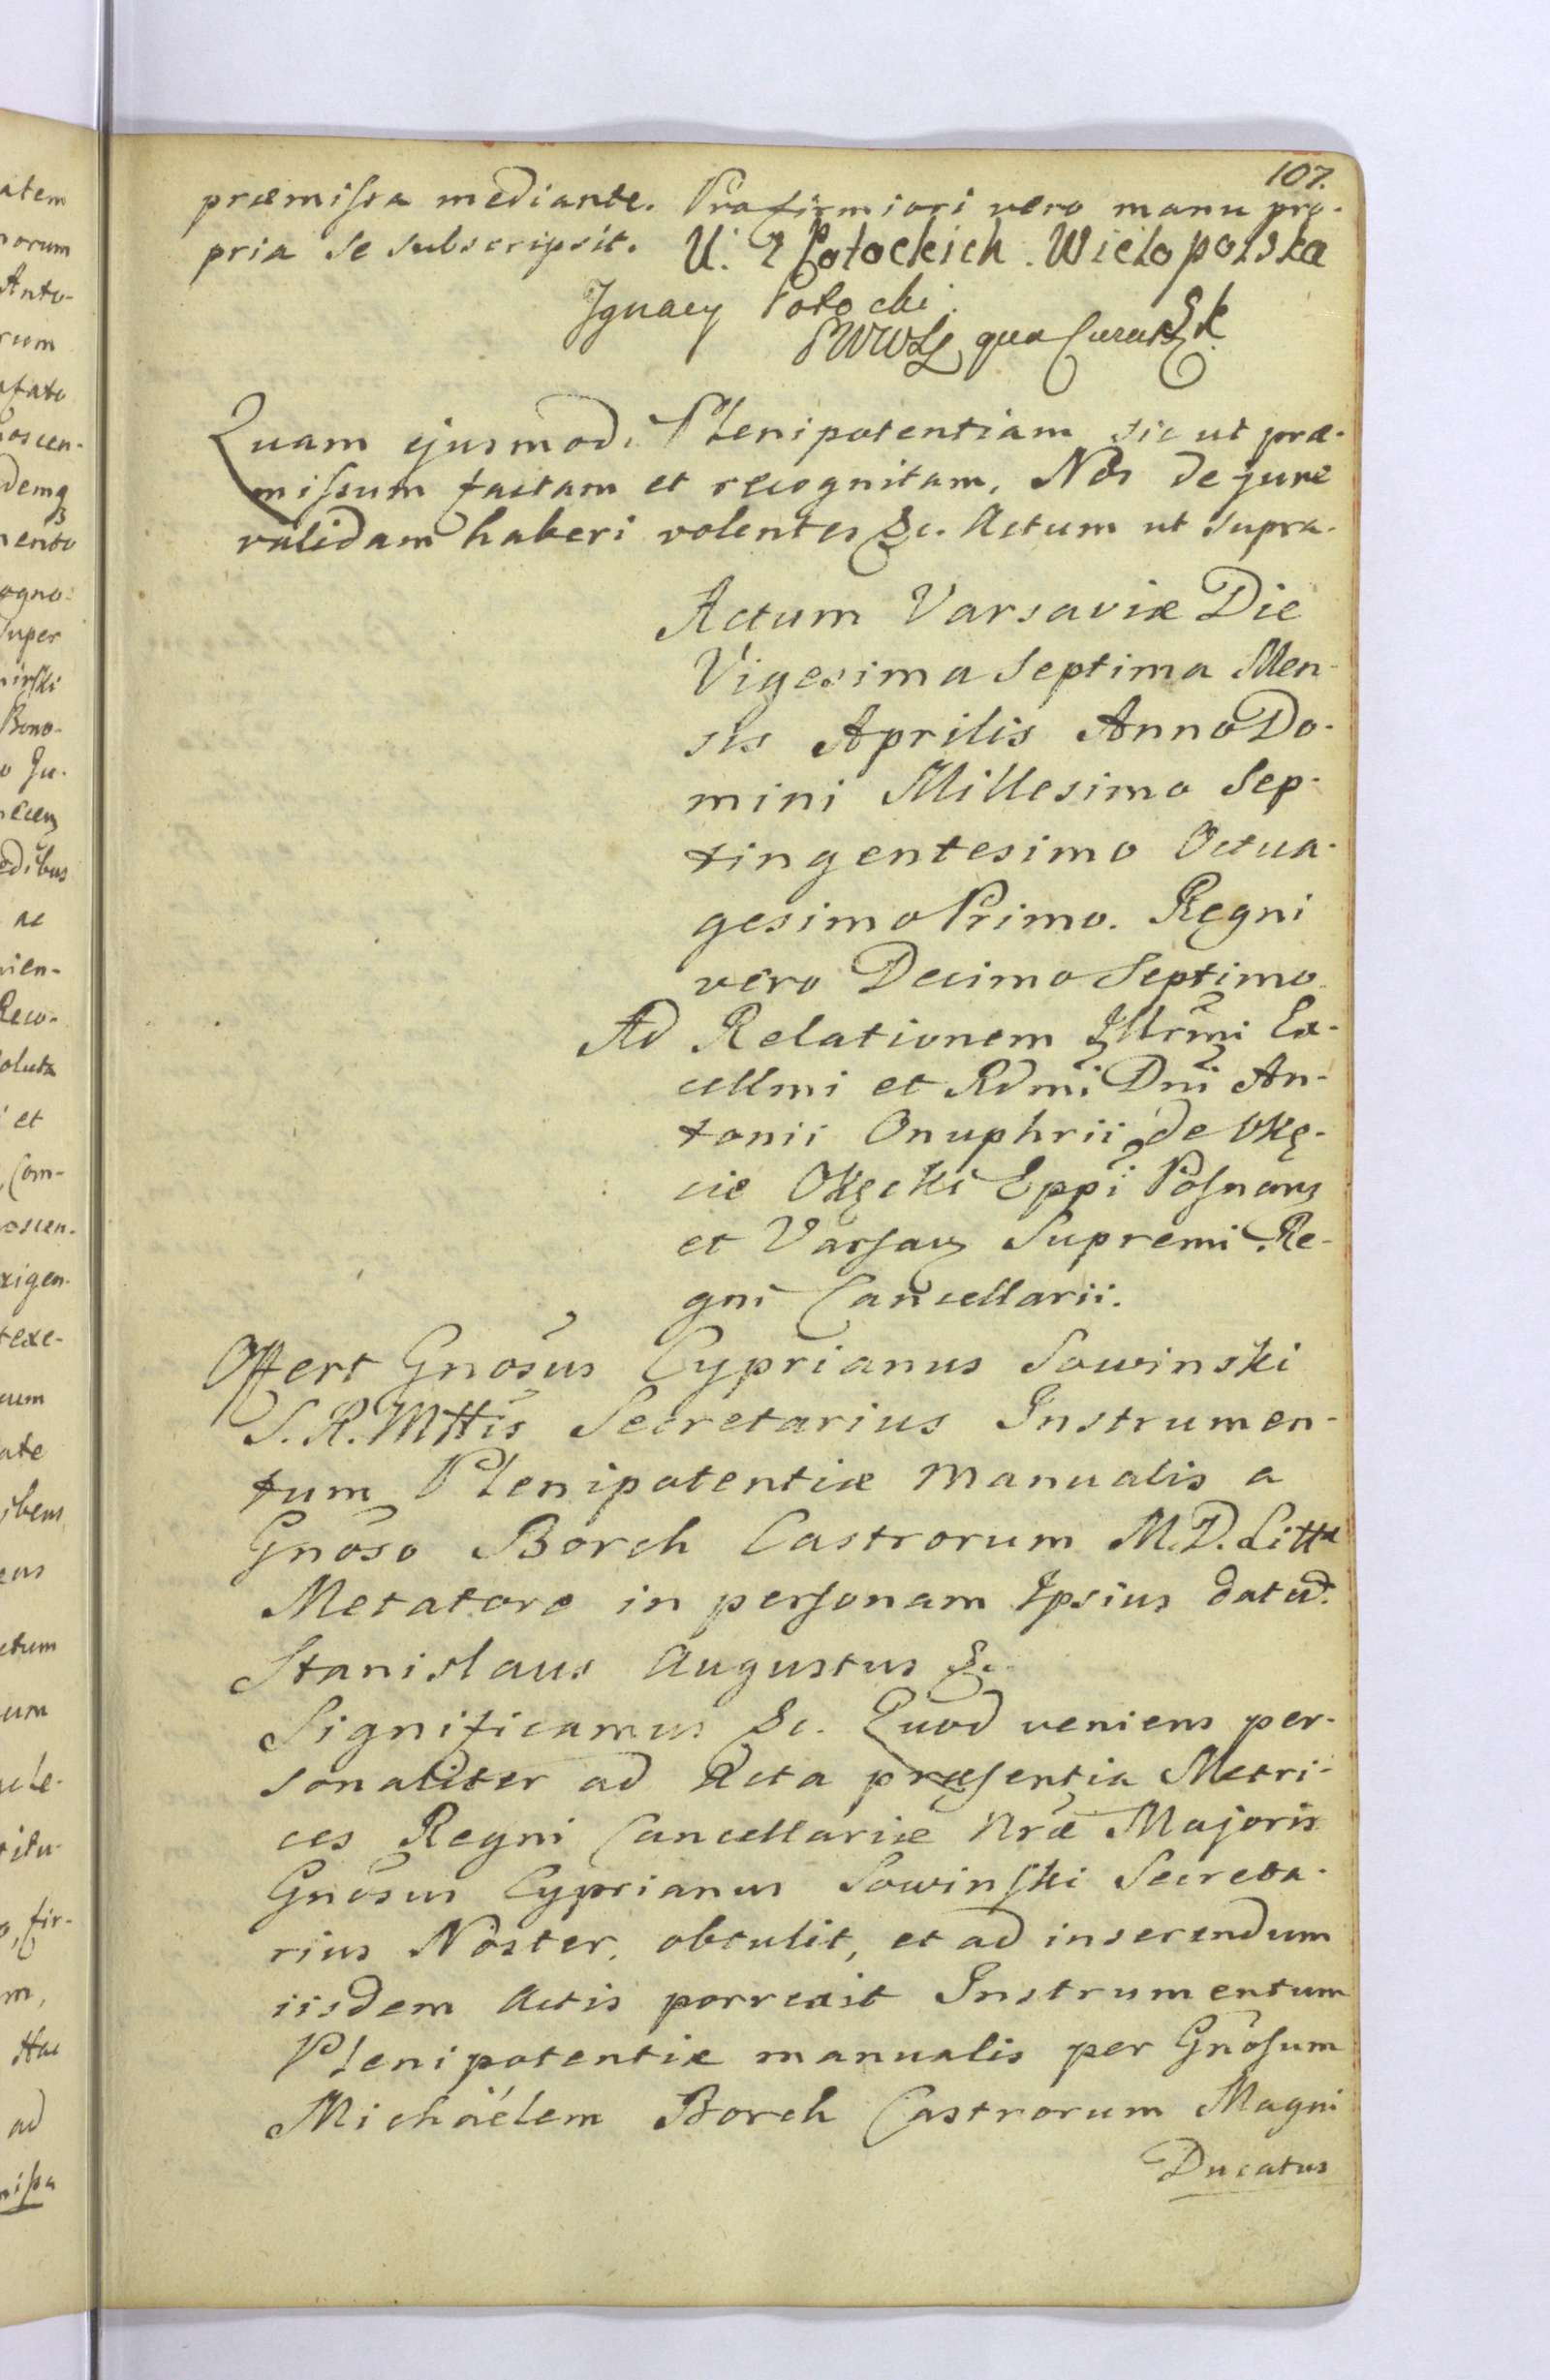 107.
præmissa mediante. Pro firmiori vero manu pro-
pria se subscripsit. U. Z Potockich. Wielopolska
Ignacy Potocki
PWWLL qua Curator
Quam ejusmodi Plenipotentiam sic ut præ-
missum factam et recognitam, Nos de jure
validam haberi volentes &c. Actum ut supra.
Actum Varsaviæ Die
Vigesima Septima Men-
sis Aprilis Anno Do-
mini Millesimo Sep-
tingentesimo Octua-
gesimo Primo. Regni
vero Decimo Septimo.
Ad Relationem Illrmi Ex-
cellmi et Rdmi Dni An-
tonii Onuphrii de Okę-
cie Okęcki Eppi Posnanz
et Varsavz Supremi Re-
gni Cancellarii.
Offert Gnosus Cyprianus Sowinski
S. R. Mttis Secretarius Instrumen-
tum Plenipotentiæ manualis a
Gnoso Borch Castrorum M. D. Litta
Metatore in personam Ipsius datū.
Stanislaus Augustus &c.
Significamus &c. Quod veniens per-
sonaliter ad Acta præsentia Metri-
ces Regni Cancellariæ Nræ Majoris
Gnosus Cyprianus Sowinski Secreta-
rius Noster, obtulit, et ad inserendum
iisdem Actis porrexit Instrumentum
Plenipotentiæ manualis per Gnosum
Michaëlem Borch Castrorum Magni
Ducatus